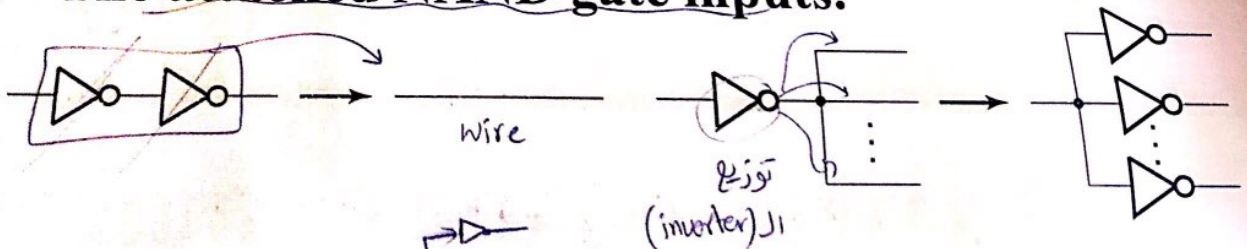 NAND gate inputs.
wire
توزيع
الـ (inverter)